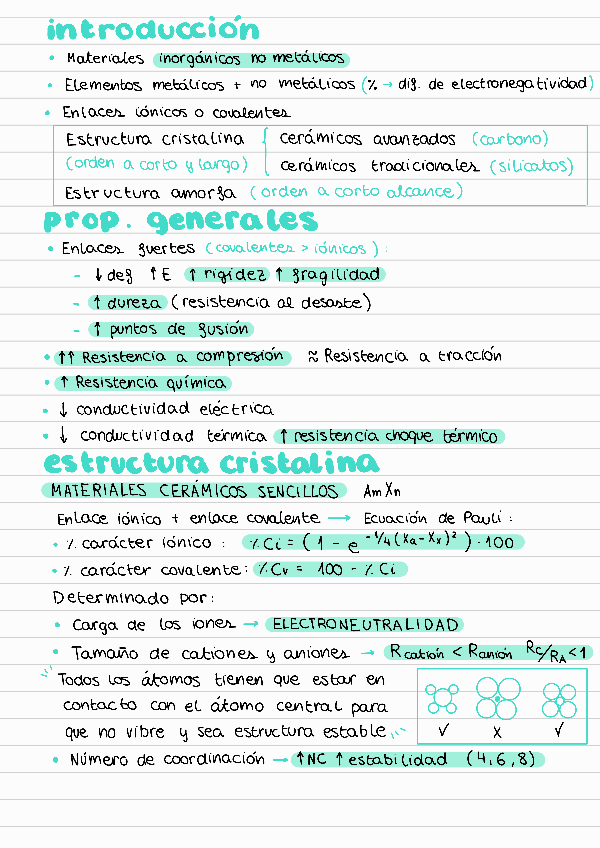 introducción
• Materiales inorgánicos no metálicos
• Elementos metálicos + no metálicos (% → dif. de electronegatividad)
• Enlaces iónicos o covalentes
Estructura cristalina { cerámicos avanzados (carbono)
(orden a corto y largo) cerámicos tradicionales (silicatos)
Estructura amorfa (orden a corto alcance)
prop. generales
• Enlaces fuertes (covalentes > iónicos):
- ↓ def ↑ E ↑ rigidez ↑ fragilidad
- ↑ dureza (resistencia al desgaste)
- ↑ puntos de fusión
• ↑↑ Resistencia a compresión ≈ Resistencia a tracción
• ↑ Resistencia química
• ↓ conductividad eléctrica
• ↓ conductividad térmica ↑ resistencia choque térmico
estructura cristalina
MATERIALES CERÁMICOS SENCILLOS AmXn
Enlace iónico + enlace covalente → Ecuación de Pauli:
• % carácter iónico: %Ci = (1 - e^-1/4(Xa-Xx)²)·100
• % carácter covalente: %Cv = 100 - %Ci
Determinado por:
• Carga de los iones → ELECTRONEUTRALIDAD
• Tamaño de cationes y aniones → Rcatión < Ranión Rc/RA<1
Todos los átomos tienen que estar en
contacto con el átomo central para
que no vibre y sea estructura estable
✓ X ✓
• Número de coordinación → ↑NC ↑ estabilidad (4,6,8)